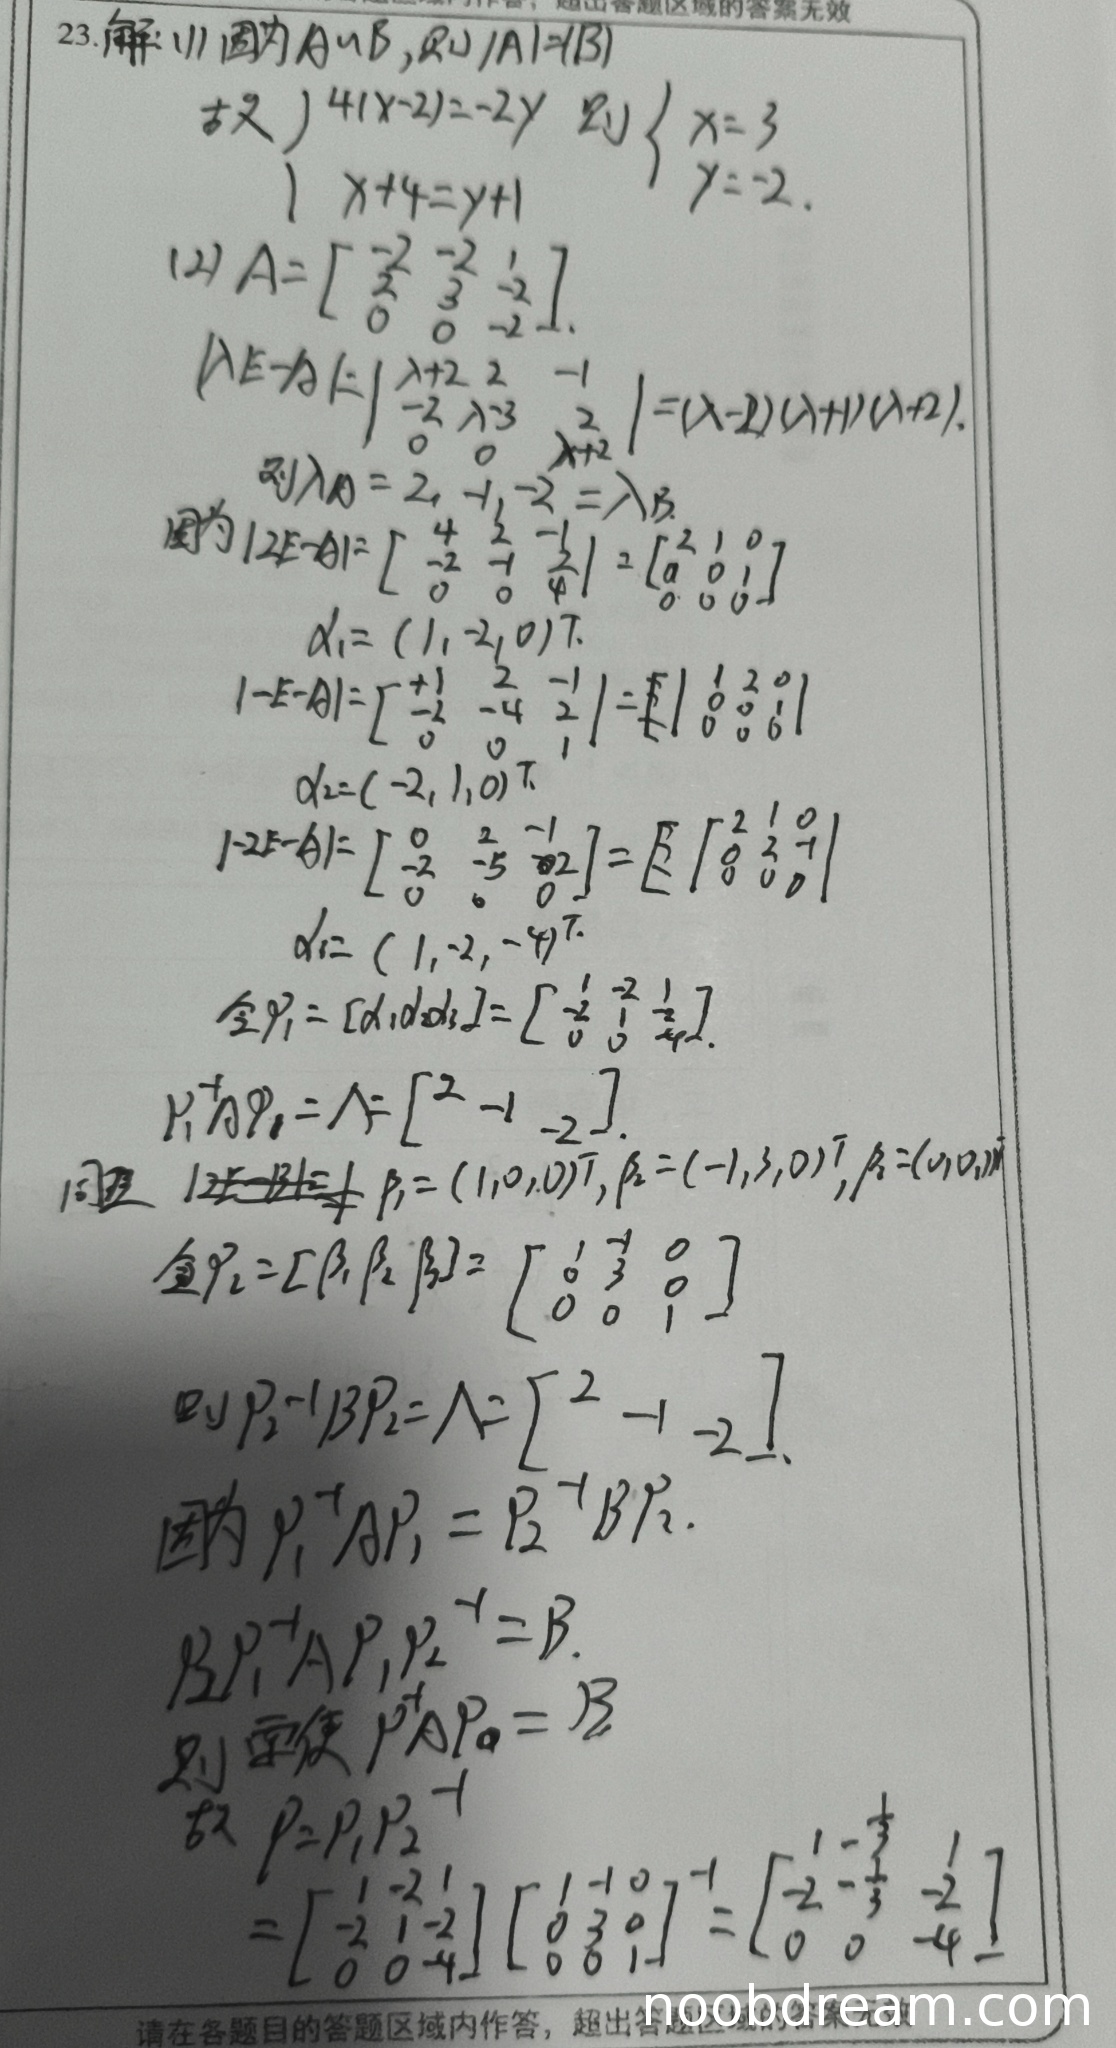 超出答题区域的答案无效
23.解:(1)因为A∽B,则|A|=|B|
故{4(x-2)=-2y 则{x=3
x+4=y+1 y=-2.
(2) A=[-2 -2 1
2 3 -2
0 0 -2].
|λE-A|=|λ+2 2 -1
-2 λ-3 2
0 0 λ+2|=(λ-2)(λ+1)(λ+2).
则λA=2,-1,-2=λB.
因为|2E-A|=[4 2 -1
-2 -1 2
0 0 4|=[2 1 0
0 0 1
0 0 0]
α1=(1,-2,0)T.
|-E-A|=[+1 2 -1
-2 -4 2
0 0 1|=|1 2 0
0 0 1
0 0 0|
α2=(-2,1,0)T.
|-2E-A|=[0 2 -1
-2 -5 2
0 0 0]=[2 1 0
0 2 -1
0 0 0|
α3=(1,-2,-4)T.
令P1=[α1α2α3]=[1 -2 1
-2 1 -2
0 0 -4].
P1-1AP1=Λ=[2 -1 -2].
同理 |2E-B|= β1=(1,0,0)T,β2=(-1,3,0)T,β3=(0,0,1)T
令P2=[β1 β2 β3]=[1 -1 0
0 3 0
0 0 1]
则P2-1BP2=Λ=[2 -1 -2].
因为P1-1AP1=P2-1BP2.
P2P1-1AP1P2-1=B.
则 要使P-1AP=B
故 P=P1P2-1
=[1 -2 1
-2 1 -2
0 0 -4][1 -1 0
0 3 0
0 0 1]-1=[1 -1/3 1
-2 -1/3 -2
0 0 -4]
noobdream.com
请在各题目的答题区域内作答,超出答题区域的答案无效